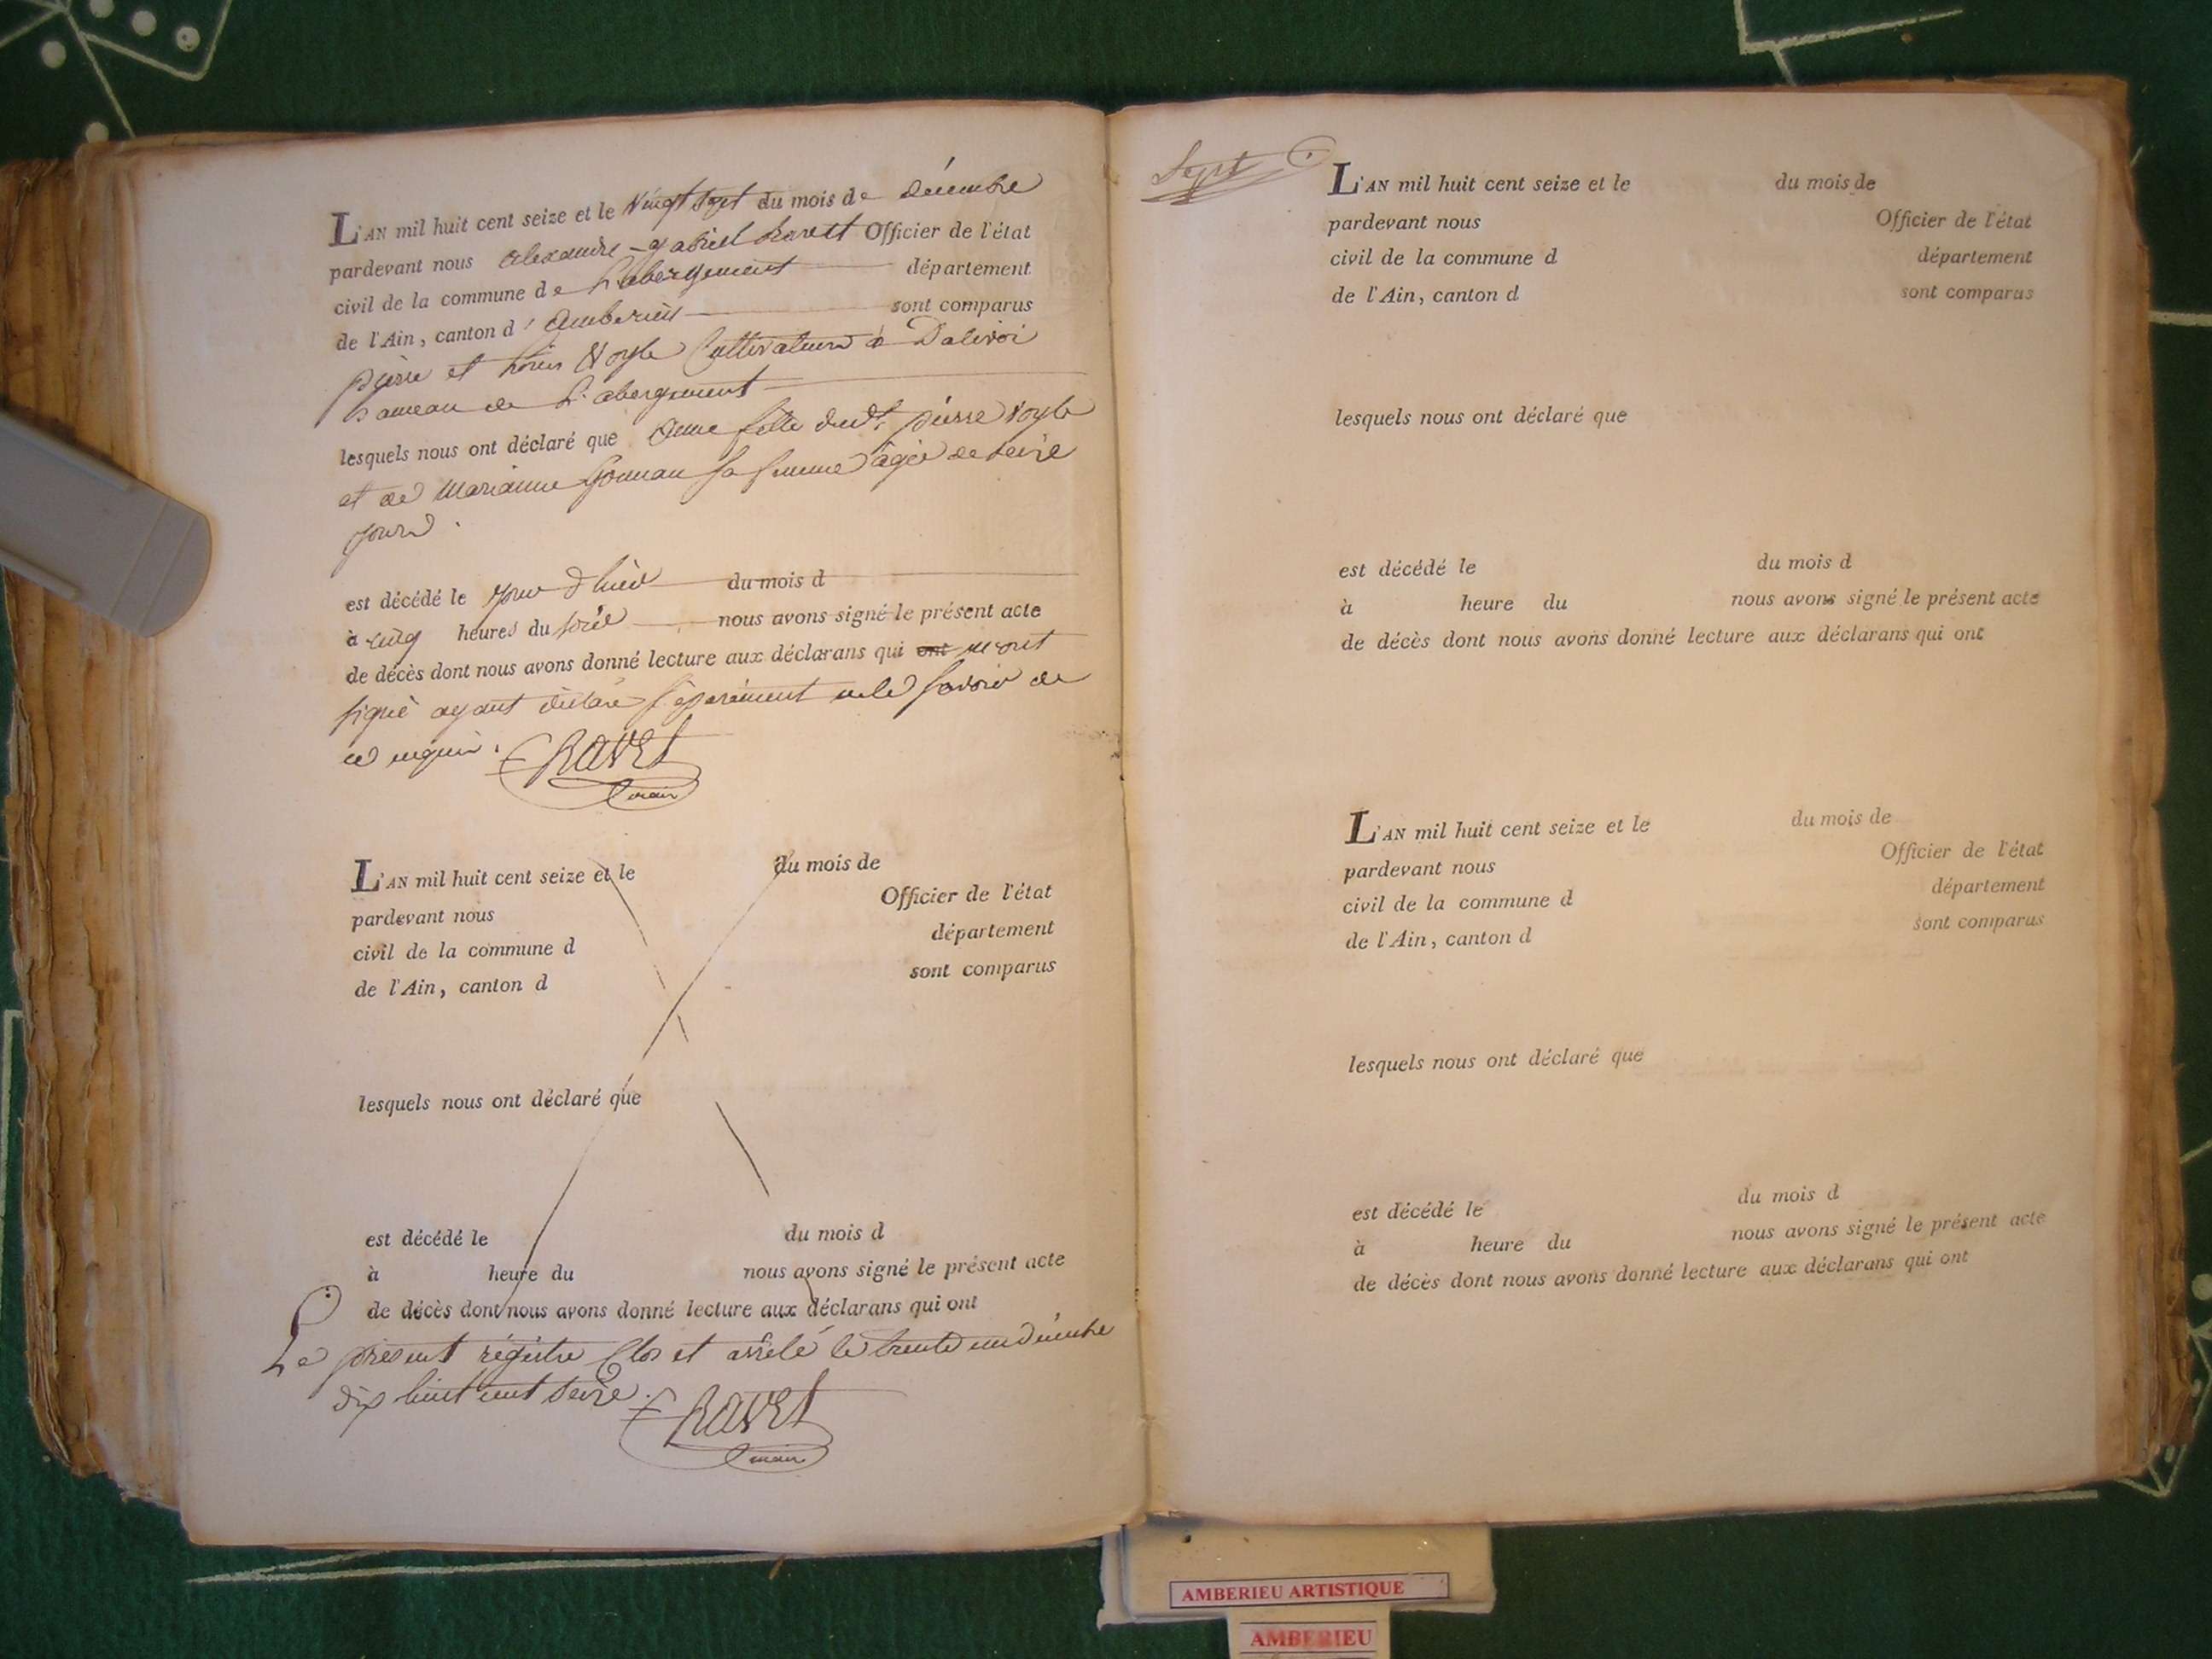 L'AN mil huit cent seize et le vingt sept du mois de décembre
pardevant nous alexandre-gabriel Ravet Officier de l'état
civil de la commune de L'abergement département
de l'Ain, canton d'Amberieu sont comparus
pierre et Louis cultivateurs à Dalivoi
hameau de L'abergement
lesquels nous ont déclaré que anne fille dudt. pierre
et de Marianne sa femme âgée de seize
jours.
est décédé le jour d'hier du mois d
à cinq heures du soire nous avons signé le présent acte
de décès dont nous avons donné lecture aux déclarans qui ont n'ont
signé ayant déclaré séparément ne le savoir de
ce requis.
Ravet
maire
L'AN mil huit cent seize et le du mois de
pardevant nous Officier de l'état
civil de la commune d département
de l'Ain, canton d sont comparus
lesquels nous ont déclaré que
est décédé le du mois d
à heure du nous avons signé le présent acte
de décès dont nous avons donné lecture aux déclarans qui ont
Le présent régistre Clos et arrêté le trente un décembre
dix huit cent seize.
Ravet
maire
Sept
L'AN mil huit cent seize et le du mois de
pardevant nous Officier de l'état
civil de la commune d département
de l'Ain, canton d sont comparus
lesquels nous ont déclaré que
est décédé le du mois d
à heure du nous avons signé le présent acte
de décès dont nous avons donné lecture aux déclarans qui ont
L'AN mil huit cent seize et le du mois de
pardevant nous Officier de l'état
civil de la commune d département
de l'Ain, canton d sont comparus
lesquels nous ont déclaré que
est décédé le du mois d
à heure du nous avons signé le présent acte
de décès dont nous avons donné lecture aux déclarans qui ont
AMBERIEU ARTISTIQUE
AMBERIEU